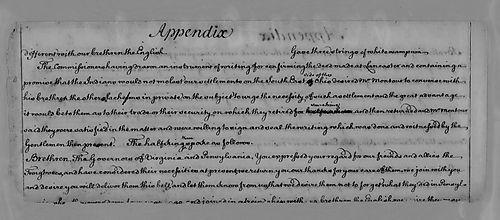 Appendix
different with our brethren the English. Gave their strings of white wampum.
The Commissioners having drawn an instrument of writing for confirming the deed made at Lancaster and containing a
promise that the Indians would not molest our settlements on the South East side of the Ohio desired Mr Montour to converse with
his brethren the other Sachems in private on the subject to urge the necessity of such a settlement and the great advantage
it would be to them as to their trade or their security, on which they retired for and then returned and Mr Montour
said they were satisfied in the matter and were willing to sign and seal the writing which was done and witnessed by the
Gentlemen then present. The half king spoke as follows.
Brethren, The Governors of Virginia and Pennsylvania, You expressed your regard for our friends and allies the
Twigtwees, and have considered their necessities at present we return you our thanks for your care of them, we join with you
and desire you will deliver them this belt and let them know from us that we desire them not to forget what they did in Pensyl-